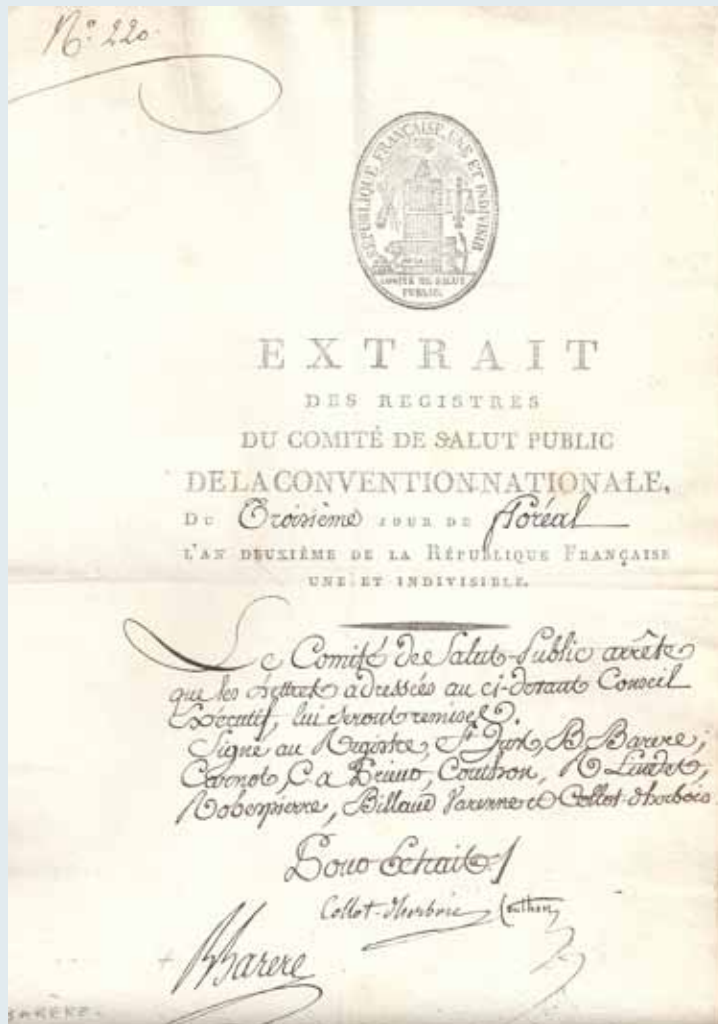 N.º 220.
RÉPUBLIQUE FRANÇAISE, UNE ET INDIVISIB
COMITÉ DE SALUT
PUBLIC.
EXTRAIT
DES REGISTRES
DU COMITÉ DE SALUT PUBLIC
DE LA CONVENTION NATIONALE,
DU Troisième JOUR DE floréal
L'AN DEUXIÈME DE LA RÉPUBLIQUE FRANÇAISE
UNE ET INDIVISIBLE.
Le Comité de Salut-Public arrête
que les Lettres adressées au ci-devant Conseil
Exécutif, lui seront remises.
Signé au Registre, St Just, B. Barere,
Carnot, C. a Prieur, Couthon, R. Lindet,
Robespierre, Billaud Varenne et Collot-d'herbois.
Pour Extrait
Collot-d'herbois Couthon
B Barere
BARERE.